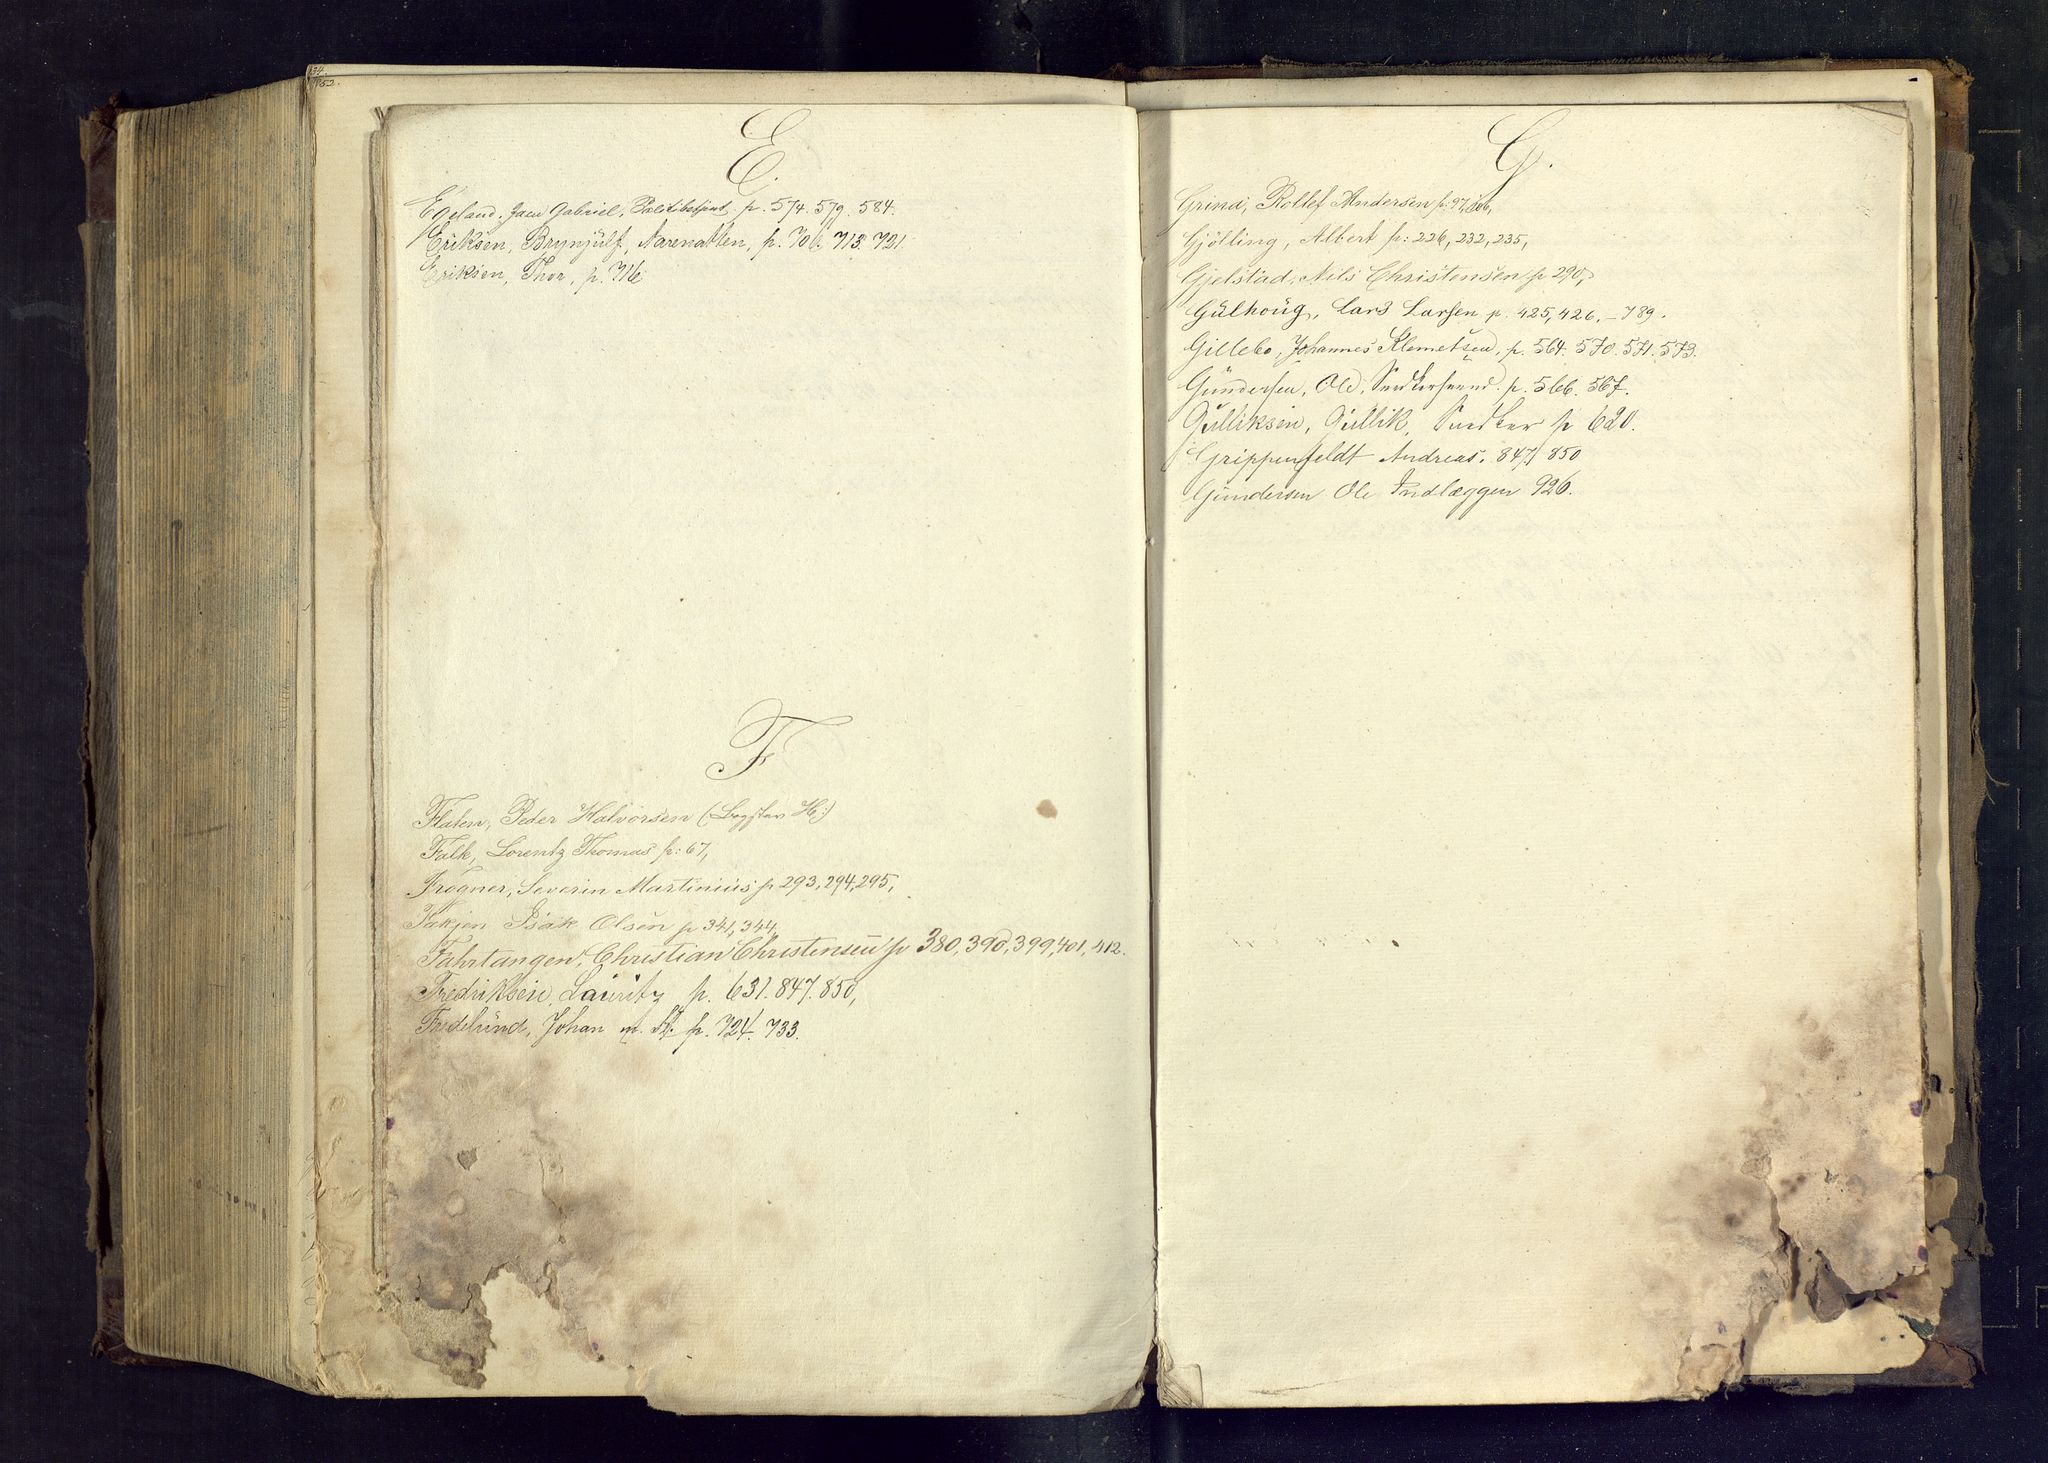 E.
Egeland, Jacu Gabriel, Politibetjent p. 574. 579. 584.
Eriksen, Brynjülf, Aarenatten, p. 706. 713. 721.
Eriksen, Thor, p. 716
F
Flaten, Peder Halvorsen
Falk, Lorentz Thomas p: 67,
Frogner, Severin Martinius p 293, 294, 295,
Isak Olsen p 341, 344,
Fahrtangen, Christian Christensen p 380, 390, 399, 401, 412.
Fredriksen, Lauritz p. 631. 847. 850,
Fredelünd, Johan m. fl. p. 724. 733.
G.
Grind, Rollef Andersen p: 97, 106,
Gjölling, Albert p: 226, 232, 235,
Gjelstad, Nils Christensen p 290,
Gülhoüg, Lars Larsen p. 425, 426. – 789.
Gillebo, Johannes Klemetsen, p. 564. 570. 571. 573.
Gündersen, Ole, p. 566. 567.
Gülliksen, Güllik, Snedker p 620.
Grippenfeldt Andreas. 847, 850
Gündersen Ole Indlæggen 926.